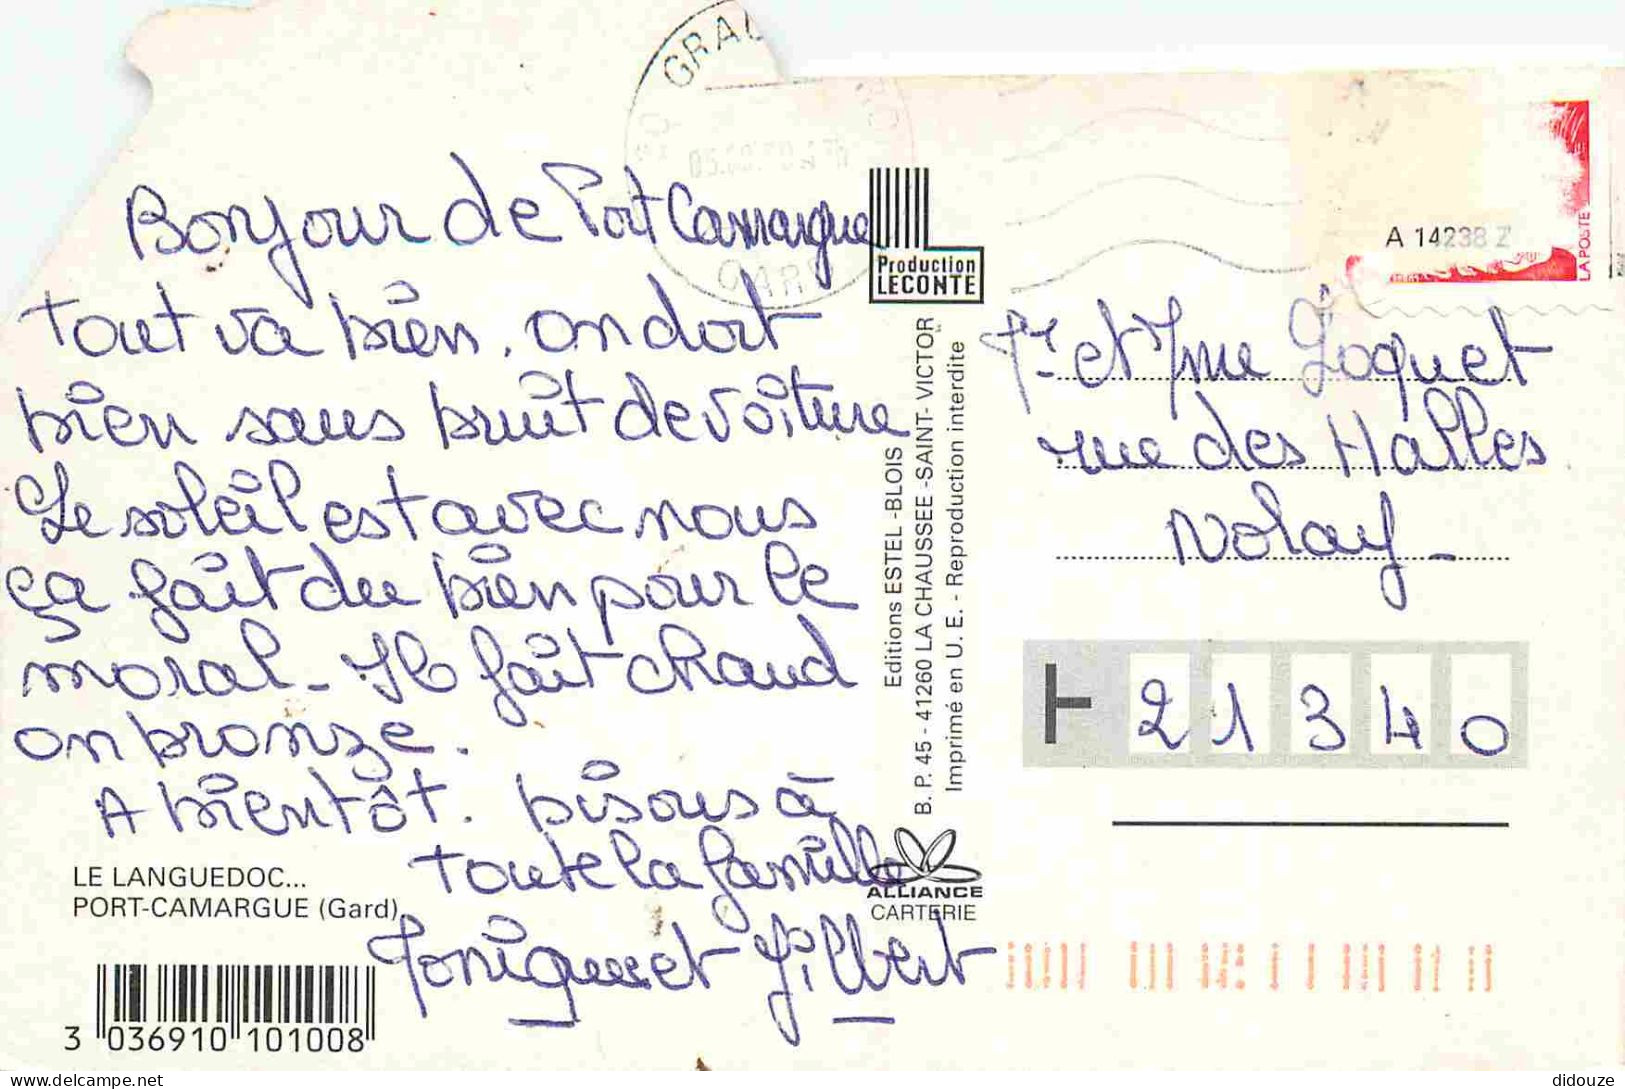 GRAU
GARD
Bonjour de Port Camargue
tout va bien. on dort
bien sans bruit de voiture
Le soleil est avec nous
ça fait du bien pour le
moral - Il fait chaud
on bronze.
A bientôt. bisous à
toute la famille
Monique et Gilbert
LE LANGUEDOC...
PORT-CAMARGUE (Gard)
3 036910 101008
Production
LECONTE
Editions ESTEL -BLOIS
B. P. 45 - 41260 LA CHAUSSEE -SAINT- VICTOR
Imprimé en U. E. - Reproduction interdite
ALLIANCE
CARTERIE
A 14238 Z
LA POSTE
Mr et Mme Loquet
rue des Halles
Nolay -
21340
didouze